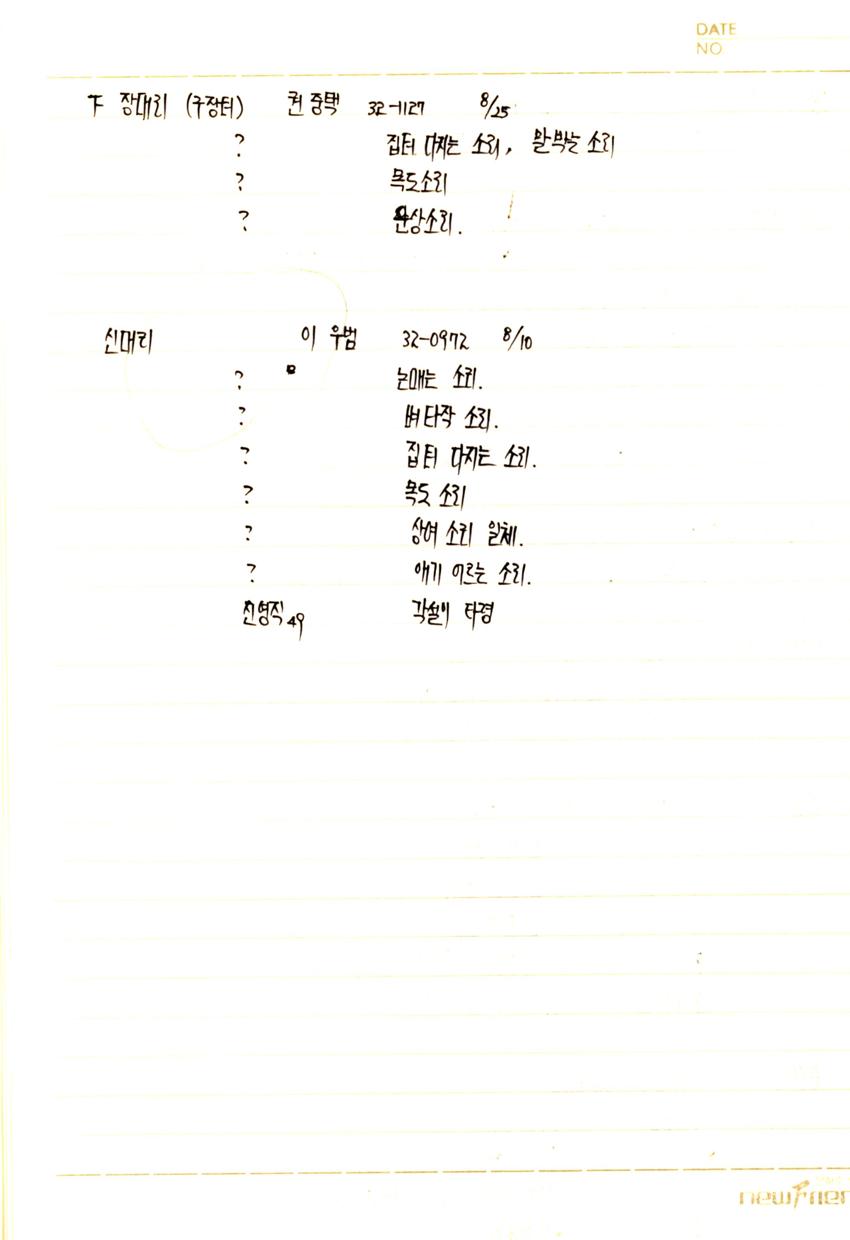 DATE
NO
下 장대리 (구장터) 권중택 32-1127 8/25
? 집터 다지는 소리, 말 박는 소리
? 목도소리
? 운상소리.
신대리 이우범 32-0972 8/10
? 논매는 소리.
? 벼타작 소리.
? 집터 다지는 소리.
? 목도 소리
? 상여 소리 일체.
? 애기 어르는 소리.
진영직 49 각설이 타령